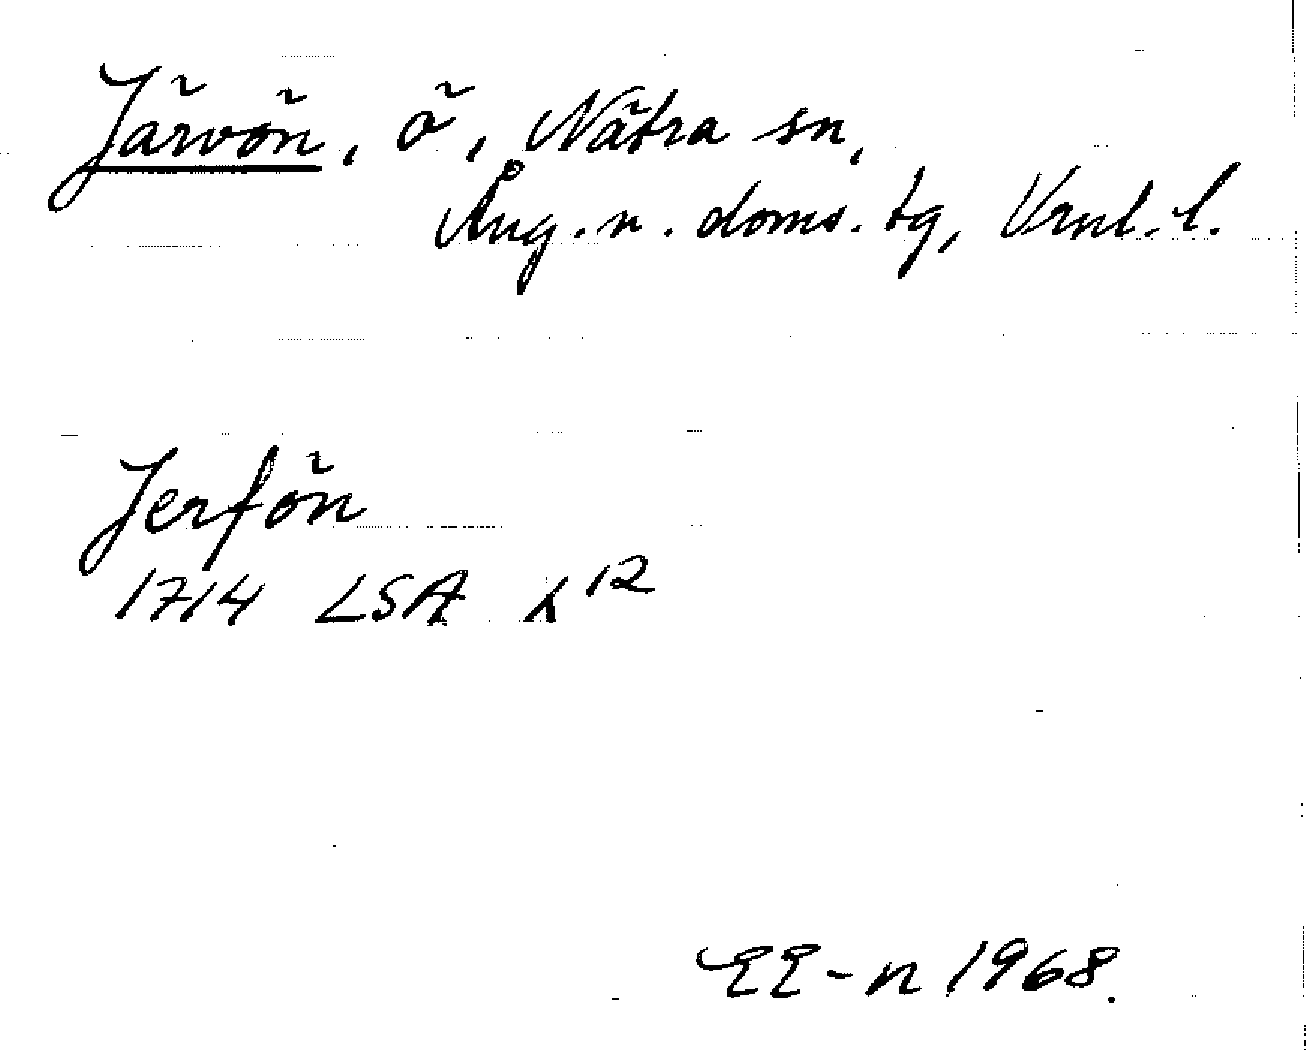 Järvön, ö, Nätra sn,
Ång. n. doms. tg, Vrnl. l.
Jerfön
1714 LSA
EE-n 1968.